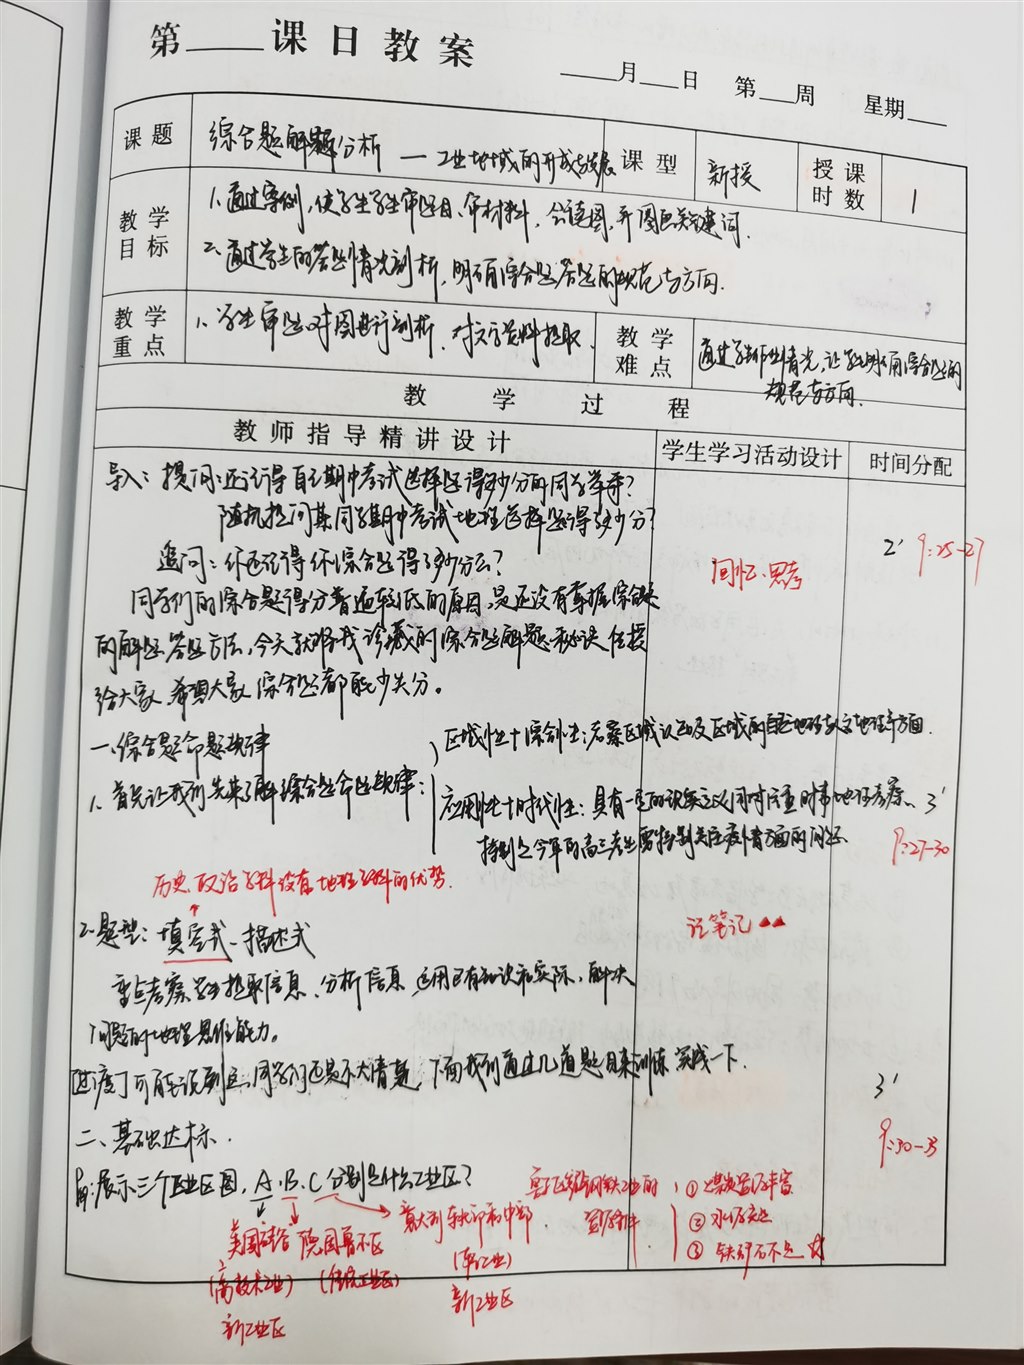 第____课日教案
____月___日 第___周 星期___
课题 综合题解题分析 — 工业地域的形成与发展 课型 新授 授课时数 1
教学目标 1.通过案例,使学生学生审题目、审材料,会读图,并圈画关键词.
2.通过学生的答题情况剖析,明确综合题答题的规范与方向.
教学重点 1.学生审题、对图进行剖析、对文字资料提取. 教学难点 通过学生作业情况,让学生明确综合题的
规范与方向.
教学过程
教师指导精讲设计 学生学习活动设计 时间分配
导入:提问:还记得自己期中考试选择题得多少分的同学举手?
随机提问某同学期中考试地理选择题得了多少分? 2' 9:25-27
追问:你还记得你综合题得了多少分么? 回忆、思考
同学们的综合题得分普遍较低的原因,是还没有掌握综合题
的解题答题方法,今天就将我珍藏的综合题解题秘诀传授
给大家,希望大家综合题都能少失分。
一、综合题命题规律 区域性+综合性:考察区域认知及区域的自然地理和人文地理等方面.
1.首先让我们先来了解综合题命题规律:
应用性+时代性:具有一定的现实意义,同时注重时事地理考察、 3'
特别是今年的高三考生要特别关注疫情方面的问题. 9:27-30
历史、政治学科没有地理学科的优势.
2.题型:填空式、描述式 记笔记▲▲
重点考察学生提取信息、分析信息、运用已有知识和实际,解决
问题的地理思维能力。
[过渡]可能说到这,同学们还是不大清楚,下面我们通过几道题目来训练实战一下. 3'
二、基础达标. 9:30-33
展示三个工业区图,A、B、C分别是什么工业区?
美国硅谷 德国鲁尔区 意大利东北部和中部
(高技术工业) (传统工业区) (轻工业)
新工业区 新工业区
钢铁工业的 ①煤炭资源丰富
②水源充足
③铁矿石不足 ☆